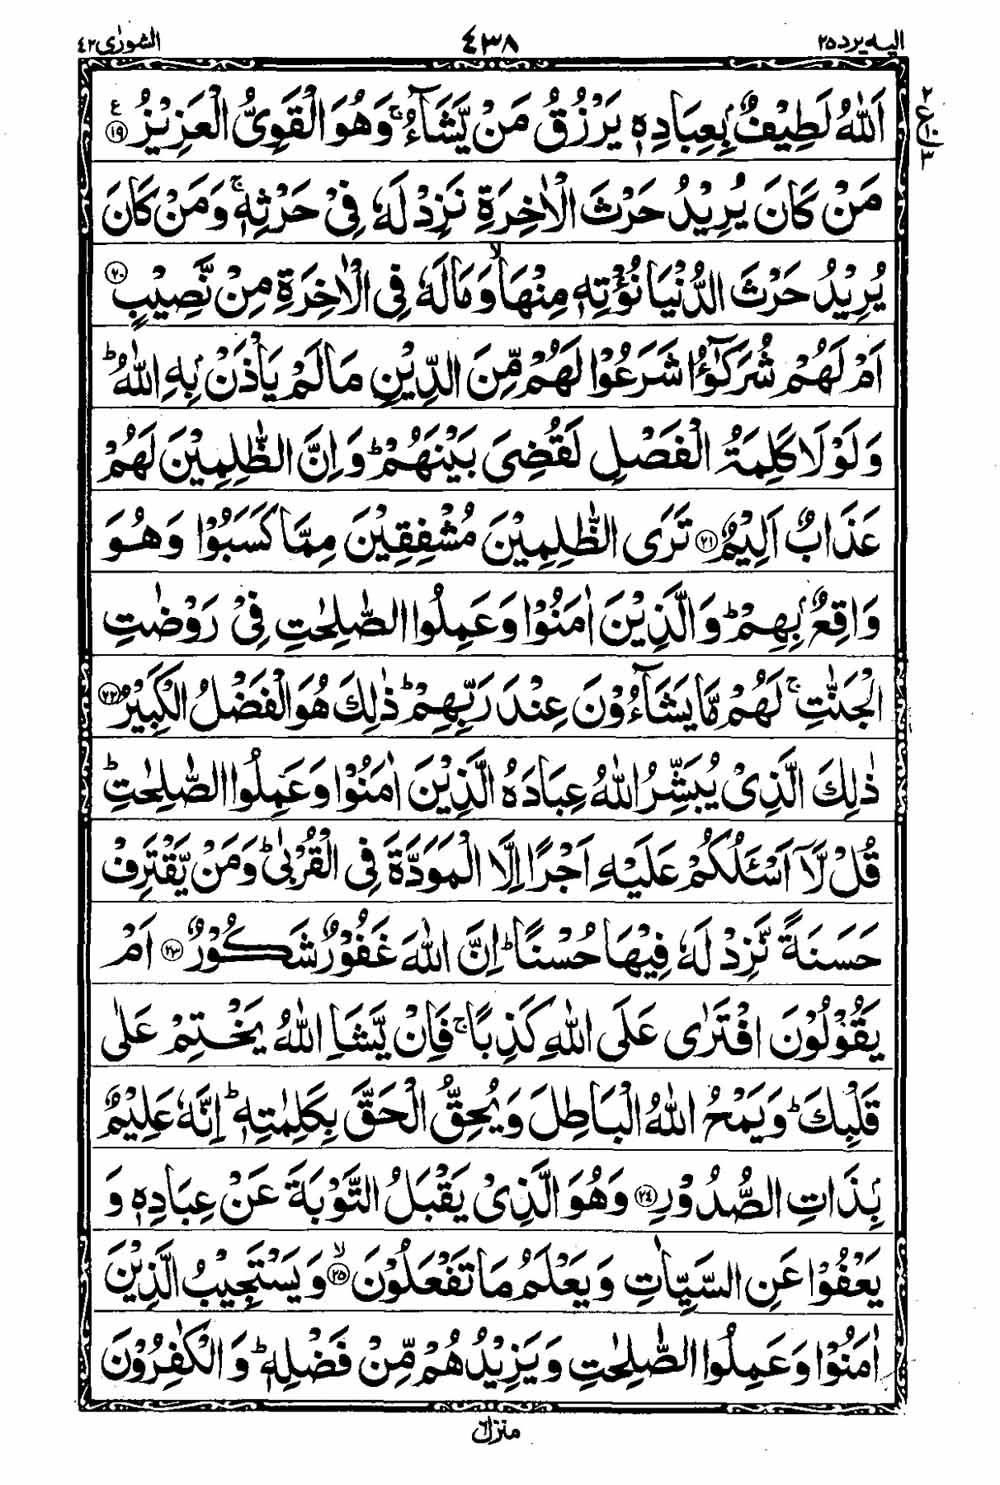 الیه یرد ۲۵ ٤٣٨ الشورٰی ٤٢
اَللّٰهُ لَطِيْفٌۢ بِعِبَادِهٖ يَرْزُقُ مَنْ يَّشَآءُ ۚ وَهُوَ الْقَوِيُّ الْعَزِيْزُ ﴿١٩﴾ ع
٢
ع ١٠
٣
مَنْ كَانَ يُرِيْدُ حَرْثَ الْاٰخِرَةِ نَزِدْ لَهٗ فِيْ حَرْثِهٖ ۚ وَمَنْ كَانَ
يُرِيْدُ حَرْثَ الدُّنْيَا نُؤْتِهٖ مِنْهَا ۙ وَمَا لَهٗ فِي الْاٰخِرَةِ مِنْ نَّصِيْبٍ ﴿٢٠﴾
اَمْ لَهُمْ شُرَكٰٓؤُا شَرَعُوْا لَهُمْ مِّنَ الدِّيْنِ مَا لَمْ يَاْذَنْۢ بِهِ اللّٰهُ ؕ
وَلَوْلَا كَلِمَةُ الْفَصْلِ لَقُضِيَ بَيْنَهُمْ ؕ وَاِنَّ الظّٰلِمِيْنَ لَهُمْ
عَذَابٌ اَلِيْمٌ ﴿٢١﴾ تَرَى الظّٰلِمِيْنَ مُشْفِقِيْنَ مِمَّا كَسَبُوْا وَهُوَ
وَاقِعٌۢ بِهِمْ ؕ وَالَّذِيْنَ اٰمَنُوْا وَعَمِلُوا الصّٰلِحٰتِ فِيْ رَوْضٰتِ
الْجَنّٰتِ ۚ لَهُمْ مَّا يَشَآءُوْنَ عِنْدَ رَبِّهِمْ ؕ ذٰلِكَ هُوَ الْفَضْلُ الْكَبِيْرُ ﴿٢٢﴾
ذٰلِكَ الَّذِيْ يُبَشِّرُ اللّٰهُ عِبَادَهُ الَّذِيْنَ اٰمَنُوْا وَعَمِلُوا الصّٰلِحٰتِ ؕ
قُلْ لَّآ اَسْـَٔلُكُمْ عَلَيْهِ اَجْرًا اِلَّا الْمَوَدَّةَ فِي الْقُرْبٰى ؕ وَمَنْ يَّقْتَرِفْ
حَسَنَةً نَّزِدْ لَهٗ فِيْهَا حُسْنًا ؕ اِنَّ اللّٰهَ غَفُوْرٌ شَكُوْرٌ ﴿٢٣﴾ اَمْ
يَقُوْلُوْنَ افْتَرٰى عَلَى اللّٰهِ كَذِبًا ۚ فَاِنْ يَّشَاِ اللّٰهُ يَخْتِمْ عَلٰى
قَلْبِكَ ؕ وَيَمْحُ اللّٰهُ الْبَاطِلَ وَيُحِقُّ الْحَقَّ بِكَلِمٰتِهٖ ؕ اِنَّهٗ عَلِيْمٌۢ
بِذَاتِ الصُّدُوْرِ ﴿٢٤﴾ وَهُوَ الَّذِيْ يَقْبَلُ التَّوْبَةَ عَنْ عِبَادِهٖ وَ
يَعْفُوْا عَنِ السَّيِّاٰتِ وَيَعْلَمُ مَا تَفْعَلُوْنَ ﴿٢٥﴾ ۙ وَيَسْتَجِيْبُ الَّذِيْنَ
اٰمَنُوْا وَعَمِلُوا الصّٰلِحٰتِ وَيَزِيْدُهُمْ مِّنْ فَضْلِهٖ ؕ وَالْكٰفِرُوْنَ
منزل ٦